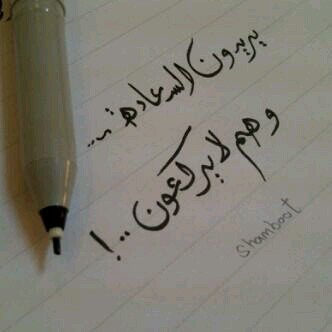 يريدون السعاده ..
وهم لا يركعون ..!
shamboot